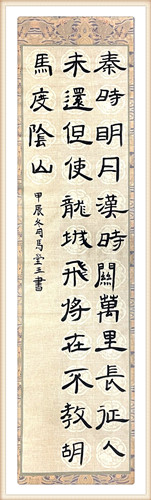 秦時明月漢時關萬里長征人
未還但使龍城飛将在不教胡
馬度陰山
甲辰冬馬書